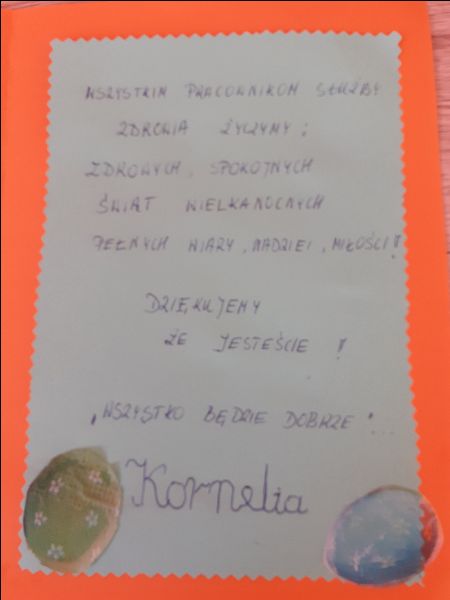 WSZYSTKIM PRACOWNIKOM SŁUŻBY
ZDROWIA ŻYCZYMY :
ZDROWYCH, SPOKOJNYCH
ŚWIĄT WIELKANOCNYCH
PEŁNYCH WIARY, NADZIEI, MIŁOŚCI!
DZIĘKUJEMY
ŻE JESTEŚCIE !
"WSZYSTKO BĘDZIE DOBRZE"...
Kornelia